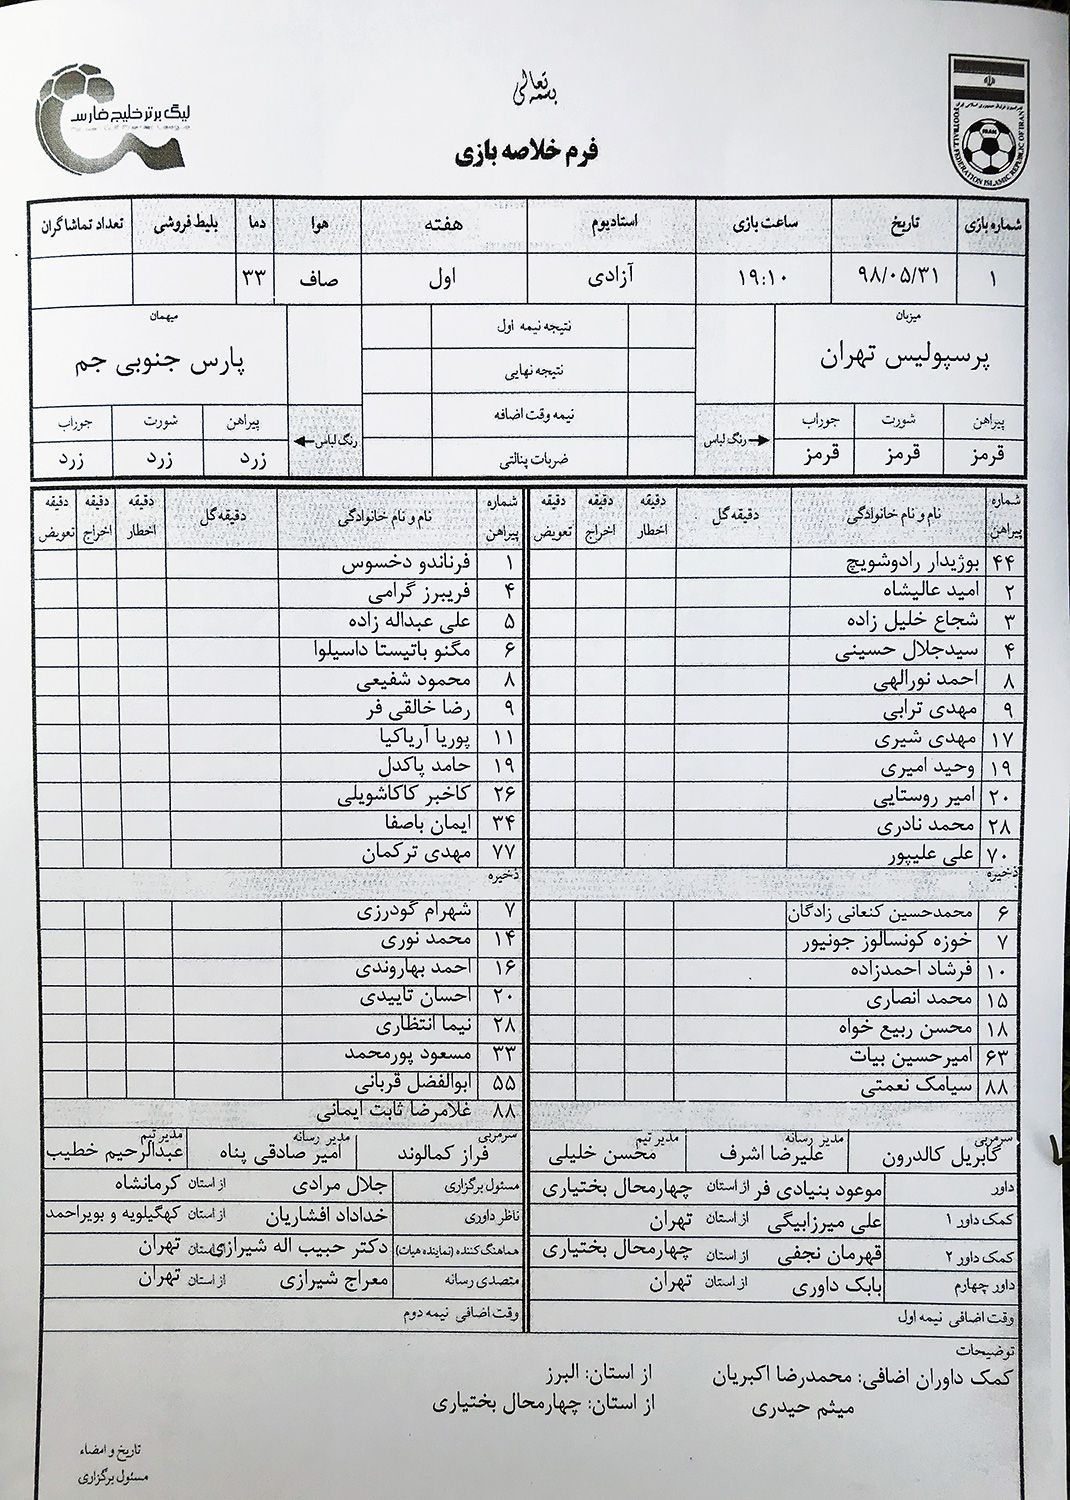 بسمه تعالی
لیگ برتر خلیج فارس
FOOTBALL FEDERATION ISLAMIC REPUBLIC OF IRAN
IRAN
فرم خلاصه بازی
شماره بازی تاریخ ساعت بازی استادیوم هفته هوا دما بلیط فروشی تعداد تماشاگران
۱ ۹۸/۰۵/۳۱ ۱۹:۱۰ آزادی اول صاف ۳۳
میزبان نتیجه نیمه اول میهمان
پرسپولیس تهران نتیجه نهایی پارس جنوبی جم
نیمه وقت اضافه
پیراهن شورت جوراب رنگ لباس رنگ لباس پیراهن شورت جوراب
قرمز قرمز قرمز ضربات پنالتی زرد زرد زرد
شماره پیراهن نام و نام خانوادگی دقیقه گل دقیقه اخطار دقیقه اخراج دقیقه تعویض شماره پیراهن نام و نام خانوادگی دقیقه گل دقیقه اخطار دقیقه اخراج دقیقه تعویض
۴۴ بوژیدار رادوشویچ ۱ فرناندو دخسوس
۲ امید عالیشاه ۴ فریبرز گرامی
۳ شجاع خلیل زاده ۵ علی عبداله زاده
۴ سیدجلال حسینی ۶ مگنو باتیستا داسیلوا
۸ احمد نورالهی ۸ محمود شفیعی
۹ مهدی ترابی ۹ رضا خالقی فر
۱۷ مهدی شیری ۱۱ پوریا آریاکیا
۱۹ وحید امیری ۱۹ حامد پاکدل
۲۰ امیر روستایی ۲۶ کاخبر کاکاشویلی
۲۸ محمد نادری ۳۴ ایمان باصفا
۷۰ علی علیپور ۷۷ مهدی ترکمان
ذخیره ذخیره
۶ محمدحسین کنعانی زادگان ۷ شهرام گودرزی
۷ خوزه کونسالوز جونیور ۱۴ محمد نوری
۱۰ فرشاد احمدزاده ۱۶ احمد بهاروندی
۱۵ محمد انصاری ۲۰ احسان تاییدی
۱۸ محسن ربیع خواه ۲۸ نیما انتظاری
۶۳ امیرحسین بیات ۳۳ مسعود پورمحمد
۸۸ سیامک نعمتی ۵۵ ابوالفضل قربانی
۸۸ غلامرضا ثابت ایمانی
سرمربی مدیر رسانه مدیر تیم سرمربی مدیر رسانه مدیر تیم
گابریل کالدرون علیرضا اشرف محسن خلیلی فراز کمالوند امیر صادقی پناه عبدالرحیم خطیب
داور موعود بنیادی فر از استان چهارمحال بختیاری مسئول برگزاری جلال مرادی از استان کرمانشاه
کمک داور ۱ علی میرزابیگی از استان تهران ناظر داوری خداداد افشاریان از استان کهگیلویه و بویراحمد
کمک داور ۲ قهرمان نجفی از استان چهارمحال بختیاری هماهنگ کننده (نماینده هیات) دکتر حبیب اله شیرازی از استان تهران
داور چهارم بابک داوری از استان تهران متصدی رسانه معراج شیرازی از استان تهران
وقت اضافی نیمه اول وقت اضافی نیمه دوم
توضیحات
کمک داوران اضافی: محمدرضا اکبریان از استان: البرز
میثم حیدری از استان: چهارمحال بختیاری
تاریخ و امضاء
مسئول برگزاری